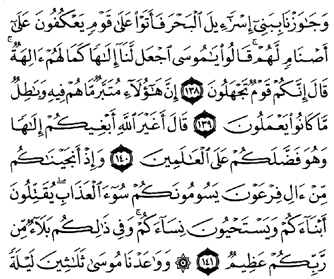 وَجَٰوَزْنَا بِبَنِىٓ إِسْرَٰٓءِيلَ ٱلْبَحْرَ فَأَتَوْا۟ عَلَىٰ قَوْمٍ يَعْكُفُونَ عَلَىٰٓ
أَصْنَامٍ لَّهُمْ ۚ قَالُوا۟ يَٰمُوسَى ٱجْعَل لَّنَآ إِلَٰهًا كَمَا لَهُمْ ءَالِهَةٌ ۚ
قَالَ إِنَّكُمْ قَوْمٌ تَجْهَلُونَ ١٣٨ إِنَّ هَٰٓؤُلَآءِ مُتَبَّرٌ مَّا هُمْ فِيهِ وَبَٰطِلٌ
مَّا كَانُوا۟ يَعْمَلُونَ ١٣٩ قَالَ أَغَيْرَ ٱللَّهِ أَبْغِيكُمْ إِلَٰهًا
وَهُوَ فَضَّلَكُمْ عَلَى ٱلْعَٰلَمِينَ ١٤٠ وَإِذْ أَنجَيْنَٰكُم
مِّنْ ءَالِ فِرْعَوْنَ يَسُومُونَكُمْ سُوٓءَ ٱلْعَذَابِ ۖ يُقَتِّلُونَ
أَبْنَآءَكُمْ وَيَسْتَحْيُونَ نِسَآءَكُمْ ۚ وَفِى ذَٰلِكُم بَلَآءٌ مِّن
رَّبِّكُمْ عَظِيمٌ ١٤١ ۞ وَوَٰعَدْنَا مُوسَىٰ ثَلَٰثِينَ لَيْلَةً